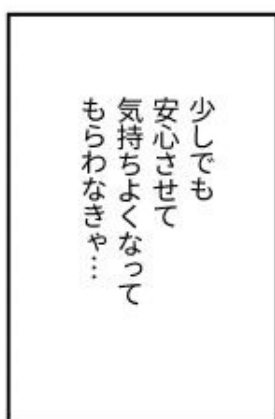 少しでも
安心させて
気持ちよくなって
もらわなきゃ…